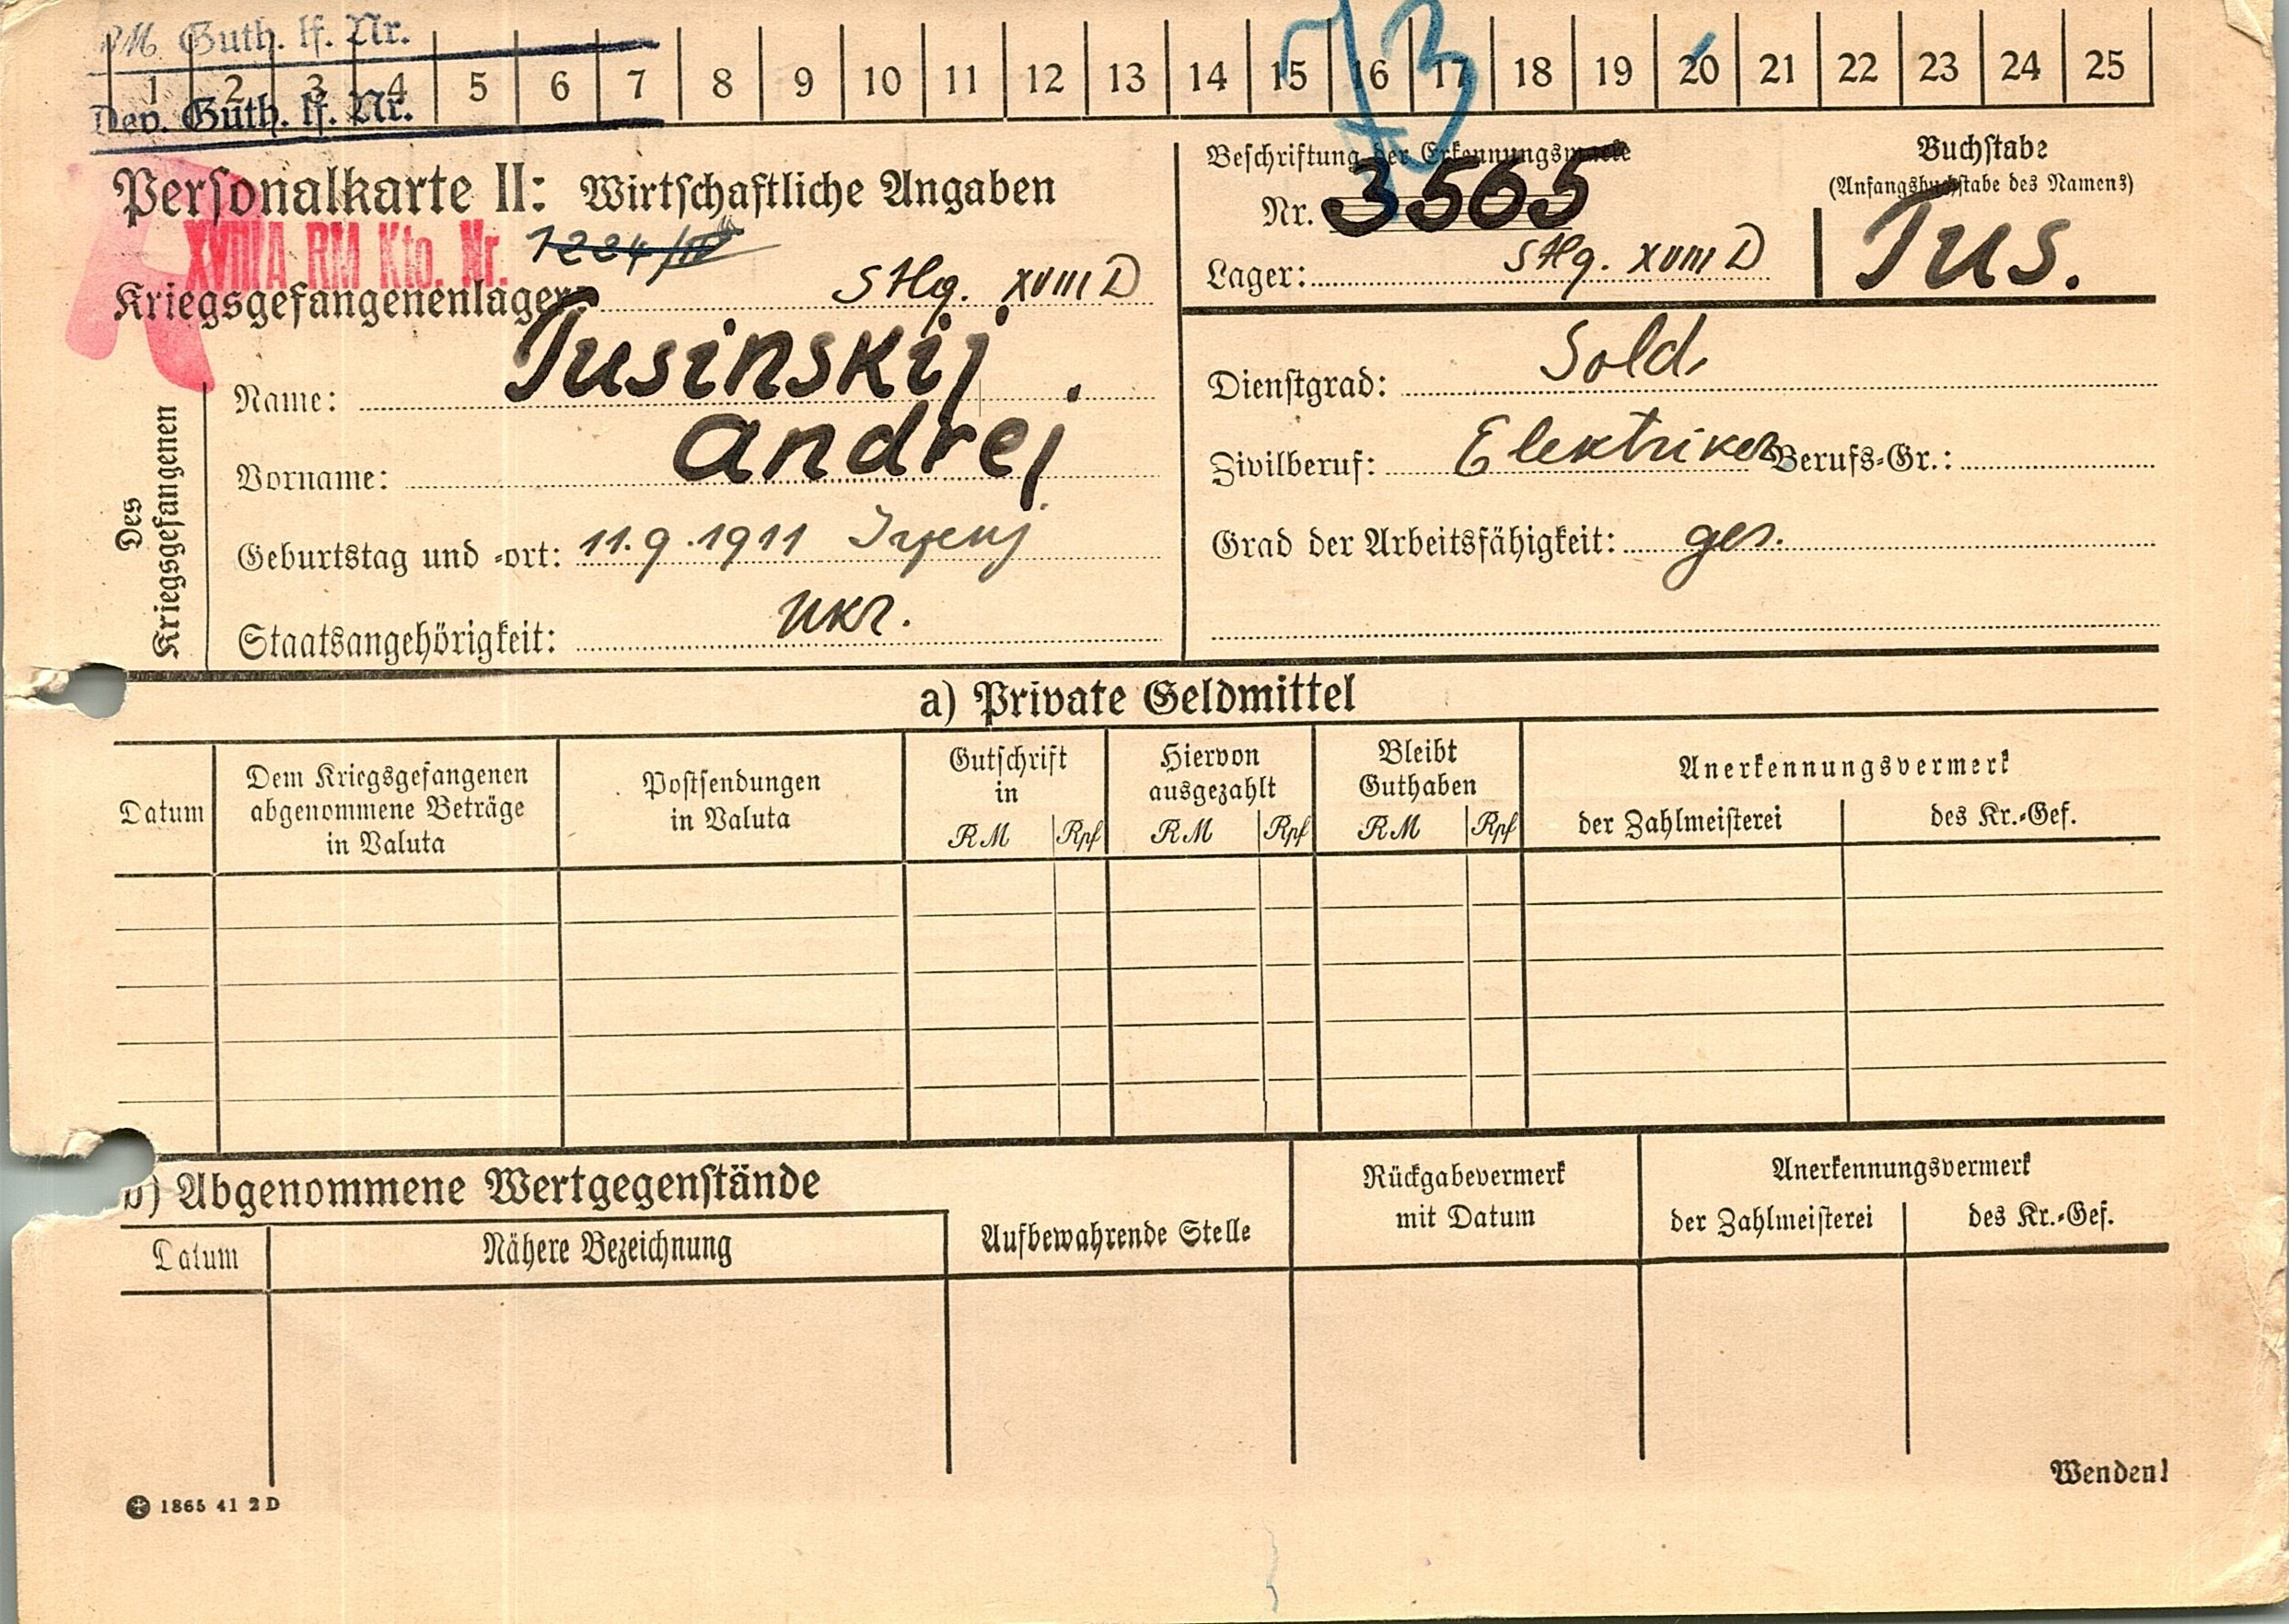 RM Guth. lf. Nr.
1 2 3 4 5 6 7 8 9 10 11 12 13 14 15 16 17 18 19 20 21 22 23 24 25
73
Dev. Guth. lf. Nr.
Personalkarte II: Wirtschaftliche Angaben
XVIII A RM Kto. Nr. 1224/IV
Kriegsgefangenenlager: Stlg. XVIII D
Beschriftung der Erkennungsmarke
Nr. 3565
Lager: Stlg. XVIII D
Buchstabe
(Anfangsbuchstabe des Namens)
Tus.
Des Kriegsgefangenen
Name: Tusinskij.
Vorname: Andrej
Geburtstag und -ort: 11.9.1911
Staatsangehörigkeit: Ukr.
Dienstgrad: Sold.
Zivilberuf: Elektriker Berufs-Gr.:
Grad der Arbeitsfähigkeit: ges.
a) Private Geldmittel
Datum
Dem Kriegsgefangenen
abgenommene Beträge
in Valuta
Postsendungen
in Valuta
Gutschrift
in
RM Rpf
Hiervon
ausgezahlt
RM Rpf
Bleibt
Guthaben
RM Rpf
Anerkennungsvermerk
der Zahlmeisterei des Kr.-Gef.
b) Abgenommene Wertgegenstände
Datum Nähere Bezeichnung
Aufbewahrende Stelle
Rückgabevermerk
mit Datum
Anerkennungsvermerk
der Zahlmeisterei des Kr.-Gef.
Wenden!
1865 41 2 D